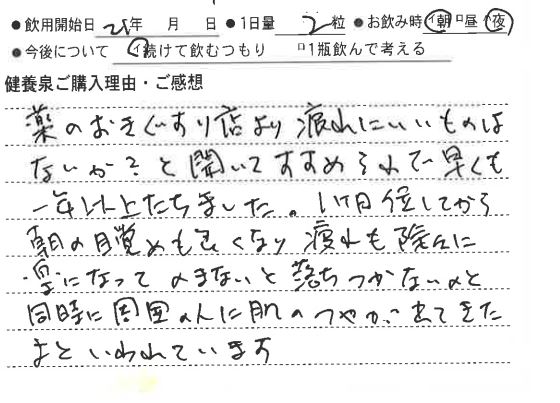 ●飲用開始日 21年 月 日 ●1日量 2粒 ●お飲み時 イ朝 ロ昼 ハ夜
●今後について イ続けて飲むつもり ロ1瓶飲んで考える
健養泉ご購入理由・ご感想
薬のおきぐすり店より 疲れにいいものは
ないか?と聞いてすすめられて早くも
一年以上たちました。1ヶ月位してから
朝の目覚めも良くなり 疲れも除々に
楽になって のまないと落ちつかないのと
同時に周囲の人に肌のつやが出てきた
まといわれています